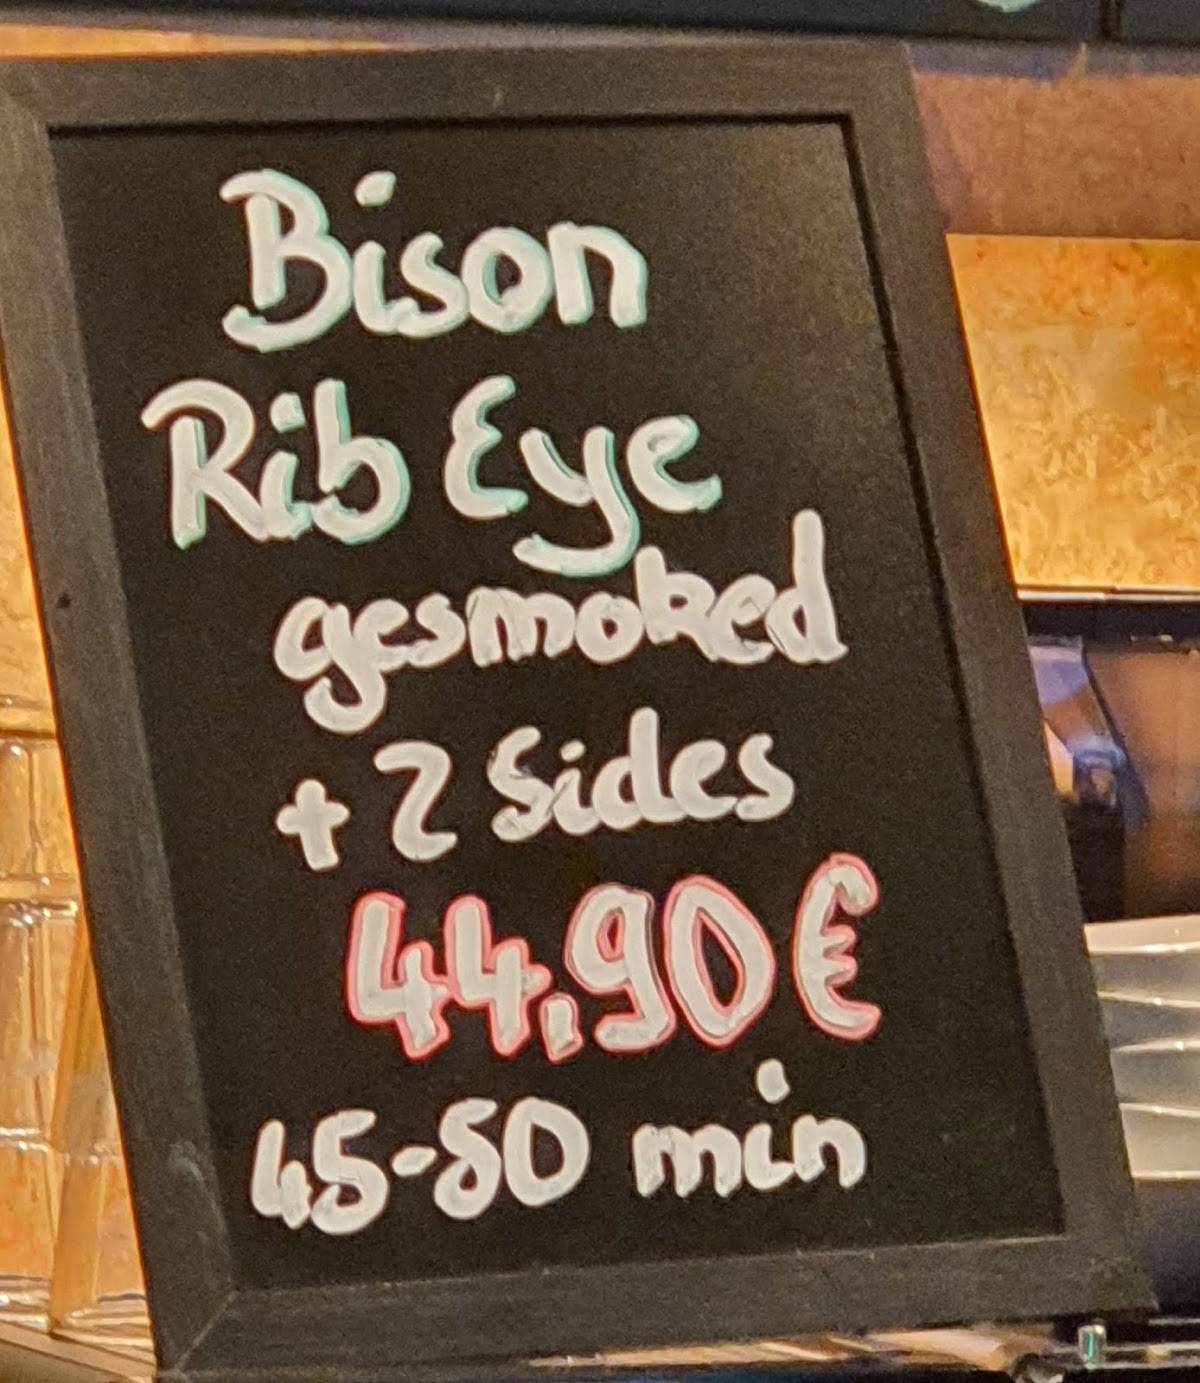 Bison
Rib Eye
gesmoked
+ 2 Sides
44,90€
45-50 min